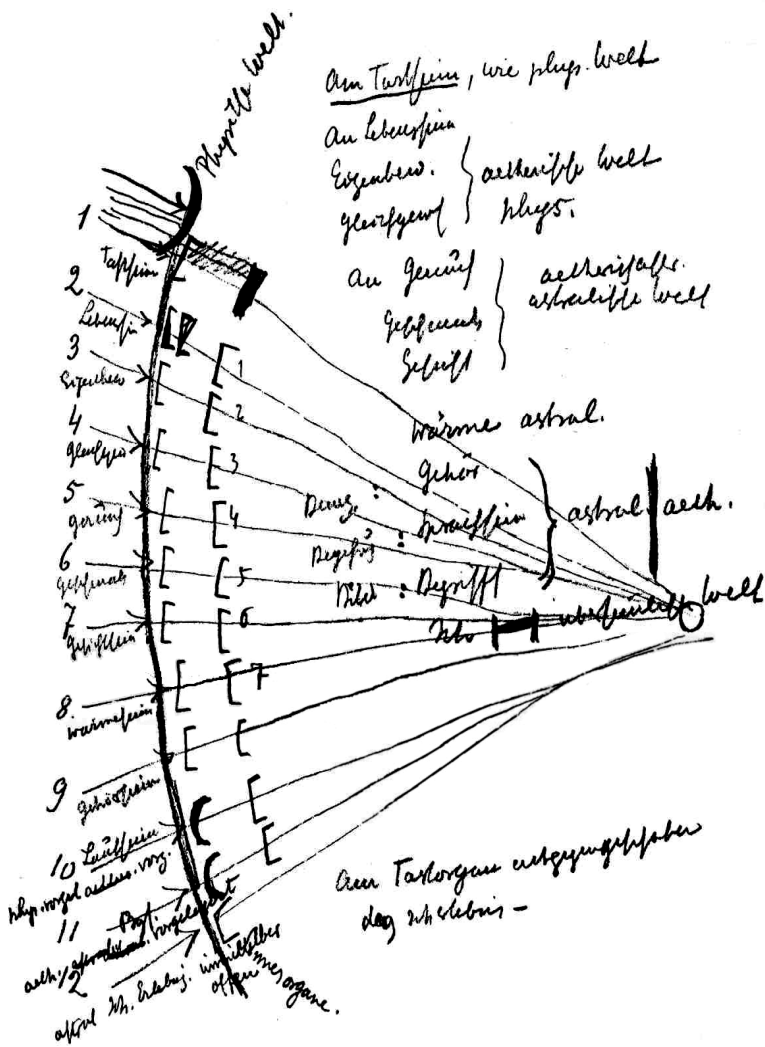 Physische Welt.
Am Tastsinn, wie phys. Welt
An Lebenssinn
Eigenbew.
Gleichgew
aetherische Welt
phys.
An Geruch
Geschmack
Gesicht
aetherisch
astralische Welt
Wärme astral.
Gehör
Sprachsinn
Begriff
astral. aeth.
Ich
übersinnliche Welt
1
Tastsinn
2
Lebenssin
3
Eigenbew
4
Gleichgew
5
Geruch
6
Geschmack
7
Gesichtssinn
8.
Wärmesinn
9
Gehörsinn
10 Lautsinn
phys. vorgel aether. vorg.
11
aeth. vorgelagert
12
astral Ich. Erlebnis. unmittelbar
offen
Sinnesorgane.
1
2
3
4
5
6
7
Am Tastorgan entgegengeschoben
das Icherlebnis –